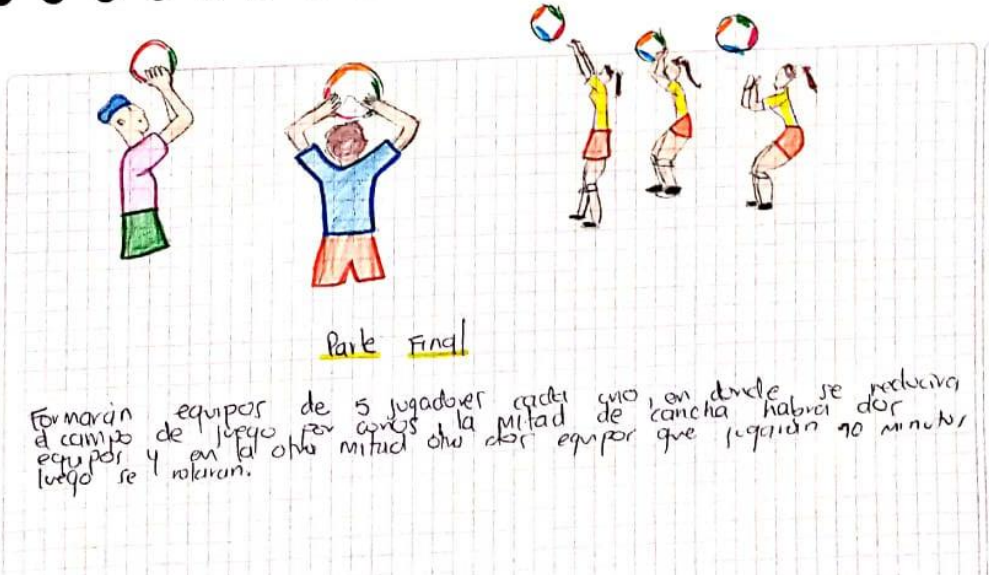 Parte Final
Formarán equipos de 5 jugadores cada uno, en donde se reducira
el campo de juego por conos, la mitad de cancha habra dos
equipos y en la otra mitad otro dos equipos que jugarán 10 minutos
luego se rotaran.